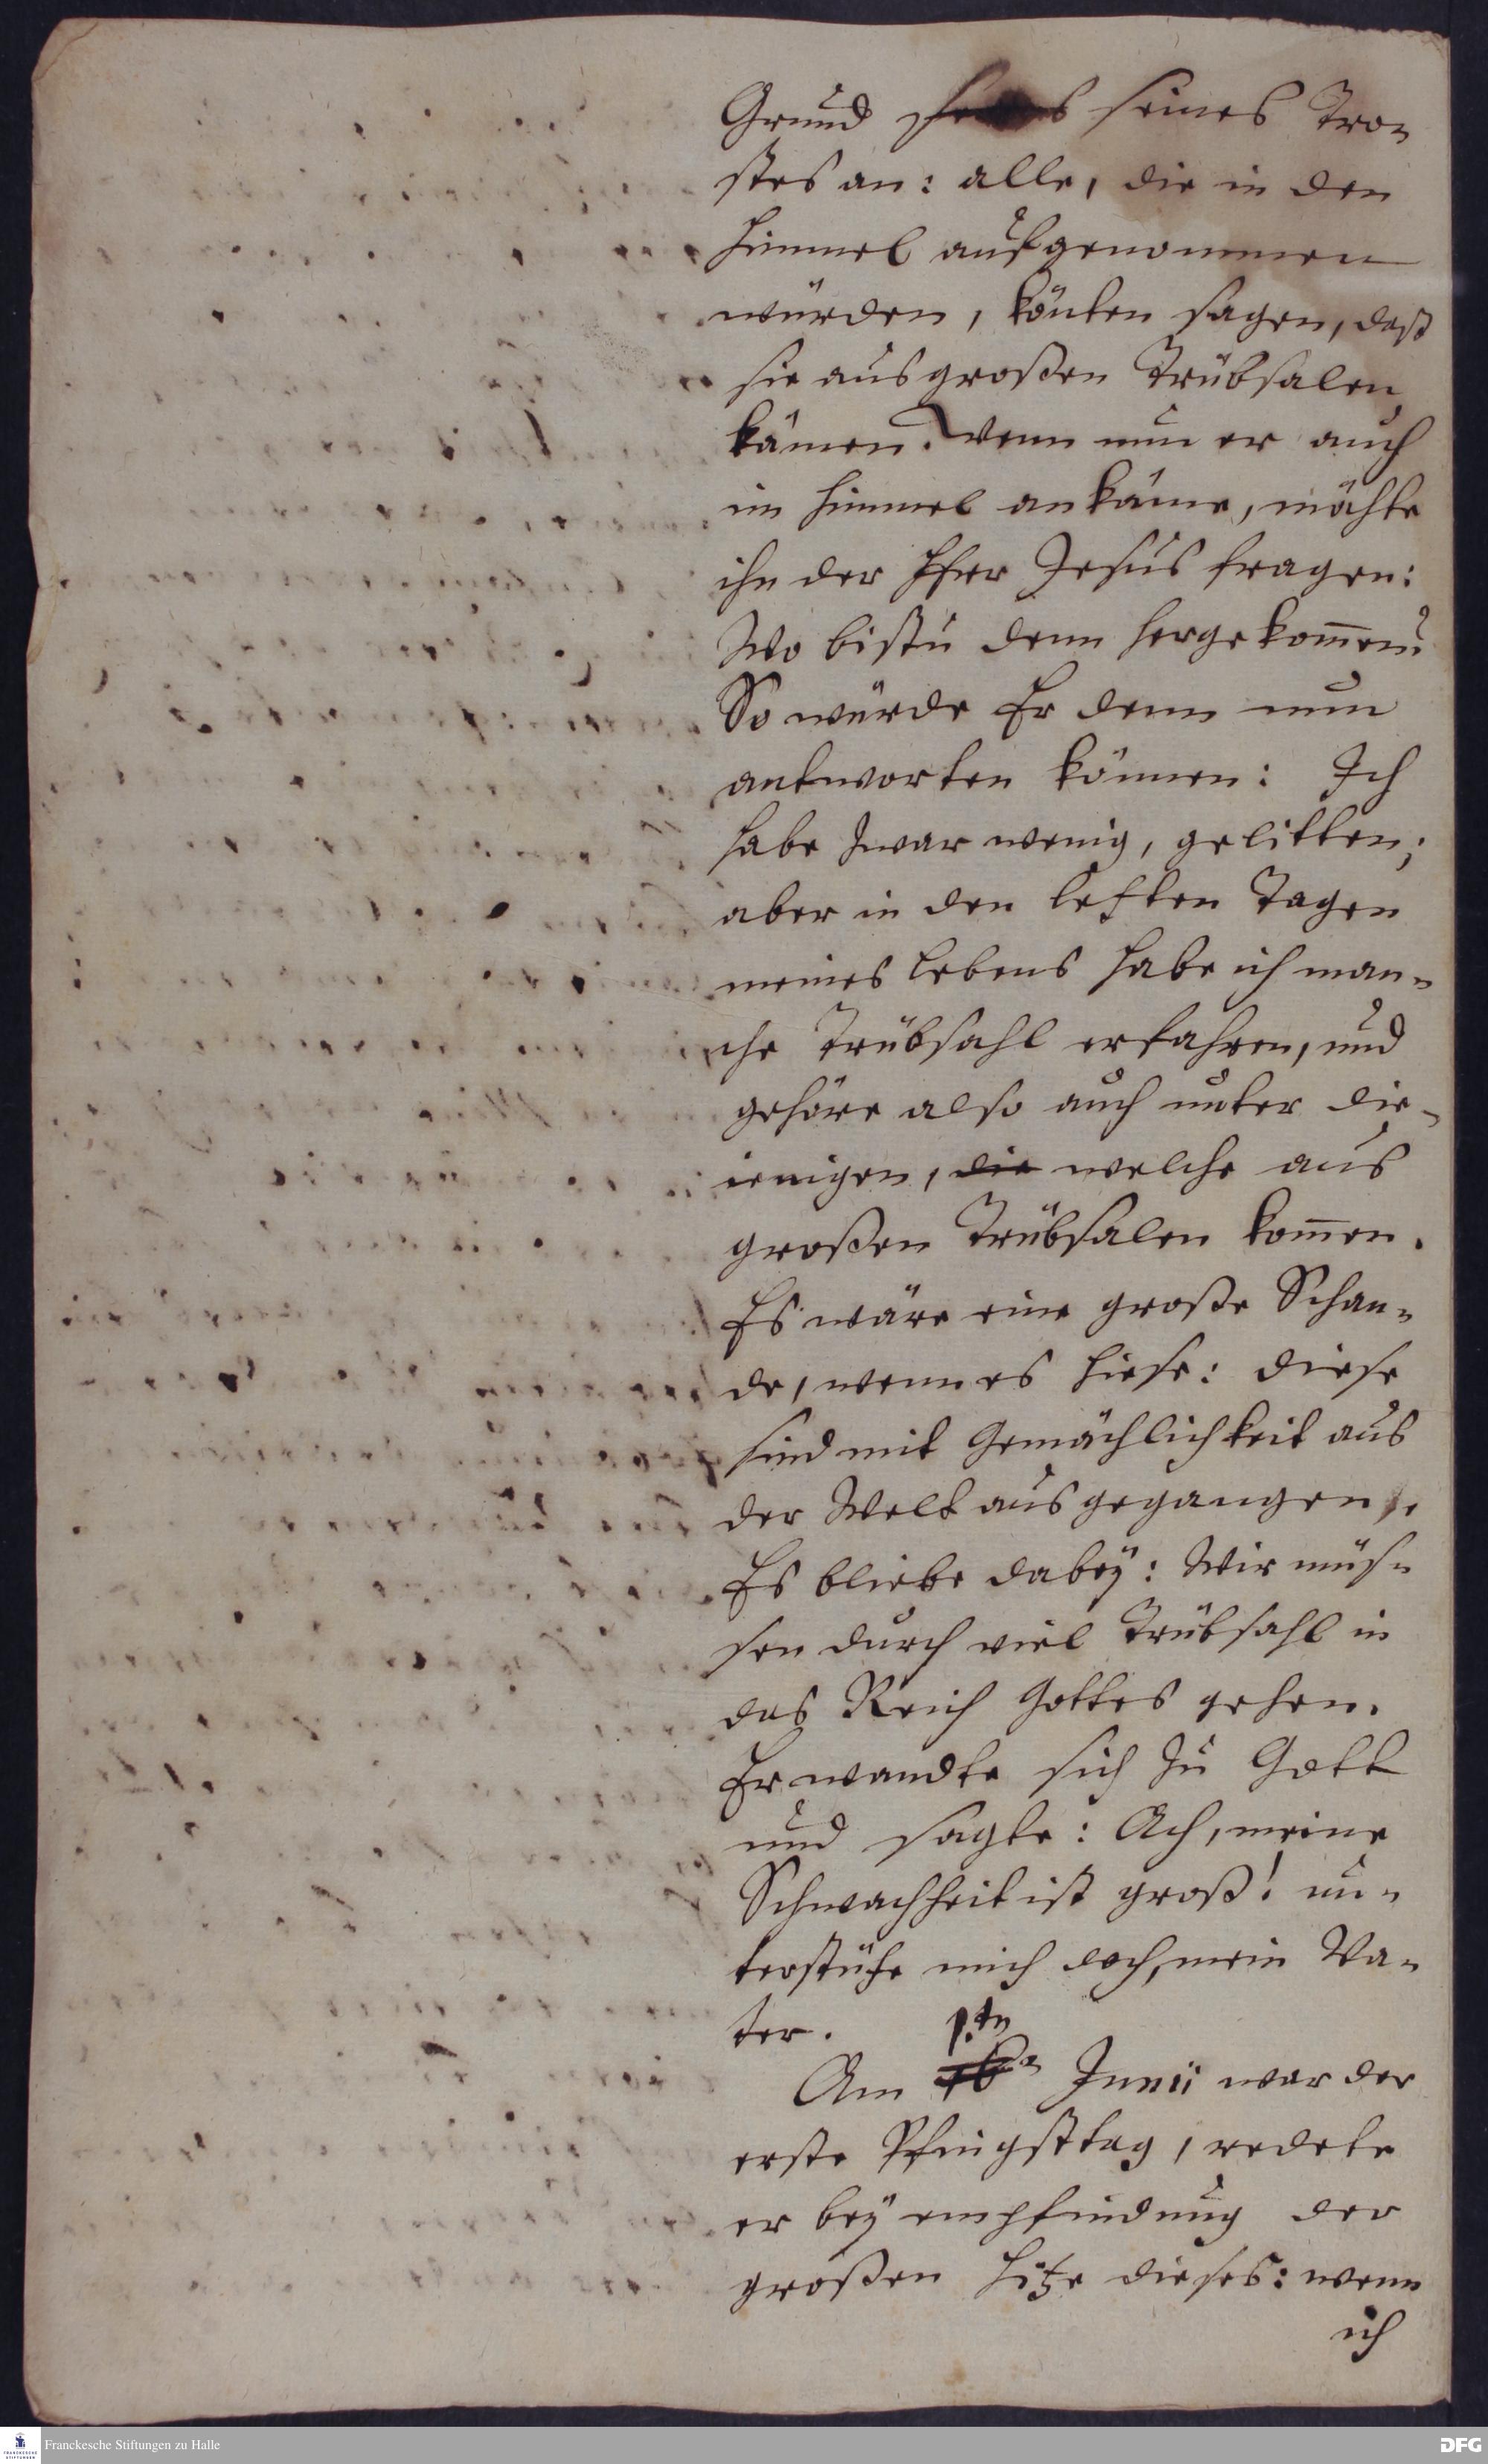 Grund seines Tro-
stes an: alle, die in den
Himmel aufgenommen
würden, könten sagen, daß
sie aus großen Trübsalen
kämen. Wenn nun er auch
im Himmel ankäme, möchte
ihn der HErr Jesus fragen:
Wo bistu denn hergekom̄en?
So würde Er denn nun
antworten können: Ich
habe zwar wenig, gelitten;
aber in den letzten Tagen
meines Lebens habe ich man-
che Trübsahl erfahren, und
gehöre also auch unter die-
ienigen, die welche aus
großen Trübsalen kom̄en.
Es wäre eine große Schan-
de, wenn es hiese: diese
sind mit Gemächlichkeit aus
der Welt ausgegangen.
Es bliebe dabey: Wir müs-
sen durch viel Trübsahl in
das Reich Gottes gehen.
Er wandte sich zu Gott
und sagte: Ach, meine
Schwachheit ist groß! un-
terstütze mich doch, mein Va-
ter.
1.tn
Am Junii war der
erste Pfingsttag, redete
er bey empfindung der
großen Hitze dieses: wenn
ich
Franckesche Stiftungen zu Halle
DFG